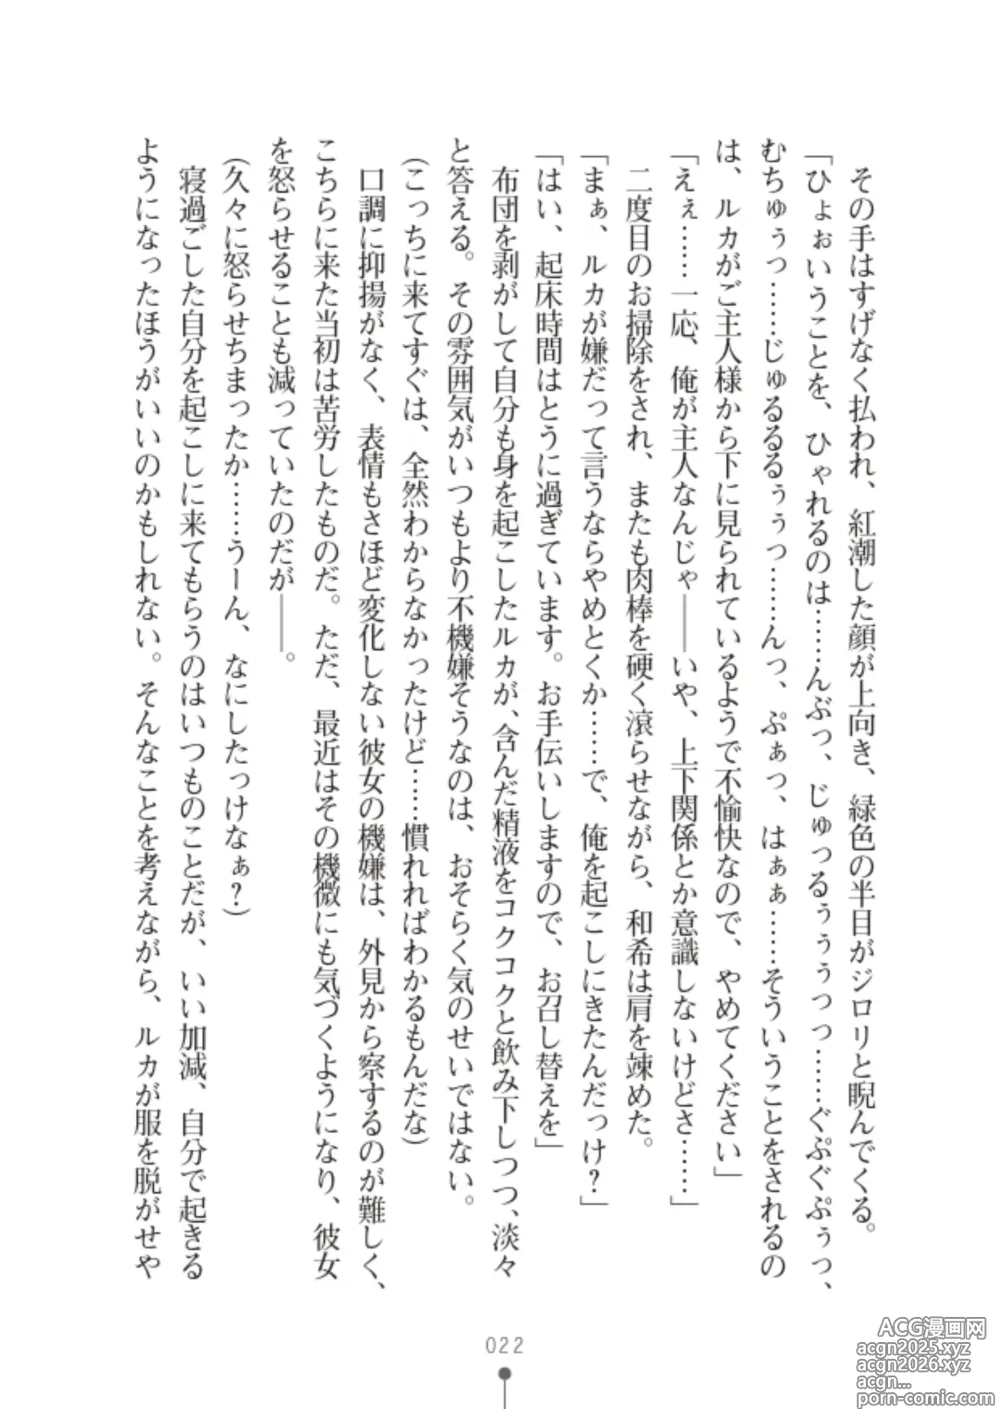 その手はすげなく払われ、紅潮した顔が上向き、緑色の半目がジロリと睨んでくる。
「ひょぉいうことを、ひゃれるのは……んぶっ、じゅっるぅぅぅっっ……ぐぷぐぷぅっ、
むちゅぅっ……じゅるるるぅぅっ……んっ、ぷぁっ、はぁぁ……そういうことをされるの
は、ルカがご主人様から下に見られているようで不愉快なので、やめてください」
「えぇ……一応、俺が主人なんじゃ――いや、上下関係とか意識しないけどさ……」
二度目のお掃除をされ、またも肉棒を硬く滾らせながら、和希は肩を竦めた。
「まぁ、ルカが嫌だって言うならやめとくか……で、俺を起こしにきたんだっけ？」
「はい、起床時間はとうに過ぎています。お手伝いしますので、お召し替えを」
布団を剥がして自分も身を起こしたルカが、含んだ精液をコクコクと飲み下しつつ、淡々
と答える。その雰囲気がいつもより不機嫌そうなのは、おそらく気のせいではない。
（こっちに来てすぐは、全然わからなかったけど……慣れればわかるもんだな）
口調に抑揚がなく、表情もさほど変化しない彼女の機嫌は、外見から察するのが難しく、
こちらに来た当初は苦労したものだ。ただ、最近はその機微にも気づくようになり、彼女
を怒らせることも減っていたのだが――。
（久々に怒らせちまったか……うーん、なにしたっけなぁ？）
寝過ごした自分を起こしに来てもらうのはいつものことだが、いい加減、自分で起きる
ようになったほうがいいのかもしれない。そんなことを考えながら、ルカが服を脱がせや
022
ACG漫画网
acgn2025.xyz
acgn2026.xyz
acgn...
porn-comic.com